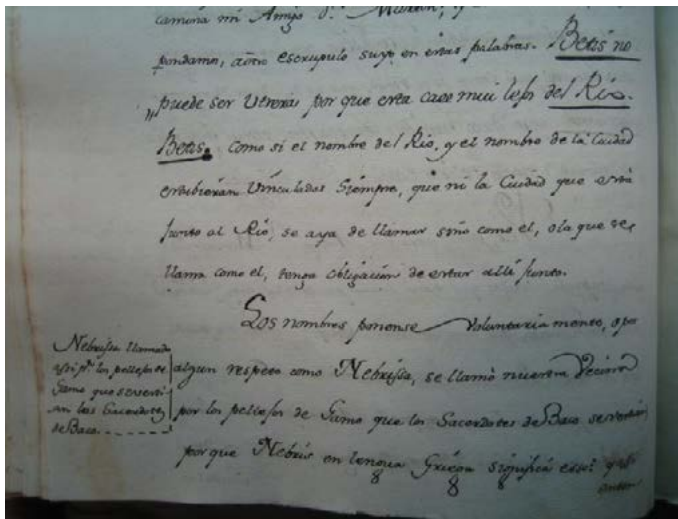 camina mi Amigo D.ⁿ Martin, y
pondamo, a este escrupulo suyo en estas palabras. Betis no
„puede ser Utrera por que esta cae mui lejos del Rio
Betis. Como si el nombre del Rio, y el nombre de la Ciudad
estubieran Vinculados Siempre, que ni la Ciudad que está
junto al Rio, se aya de llamar sino como el, o la que se
llama como el, tenga obligacion de estar alli junto.
Los nombres ponense Voluntariamente, o por
algun respeto como Nebrissa, se llamó nuestra Vecina
por los pellejos de Gamo que los Sacerdotes de Baco se vestian
porque Nebris en lengua Griega significa esso! y
Nebrissa llamada
assi p.r los pellejos de
Gamo que se vesti-
an los Sacerdotes
de Baco.